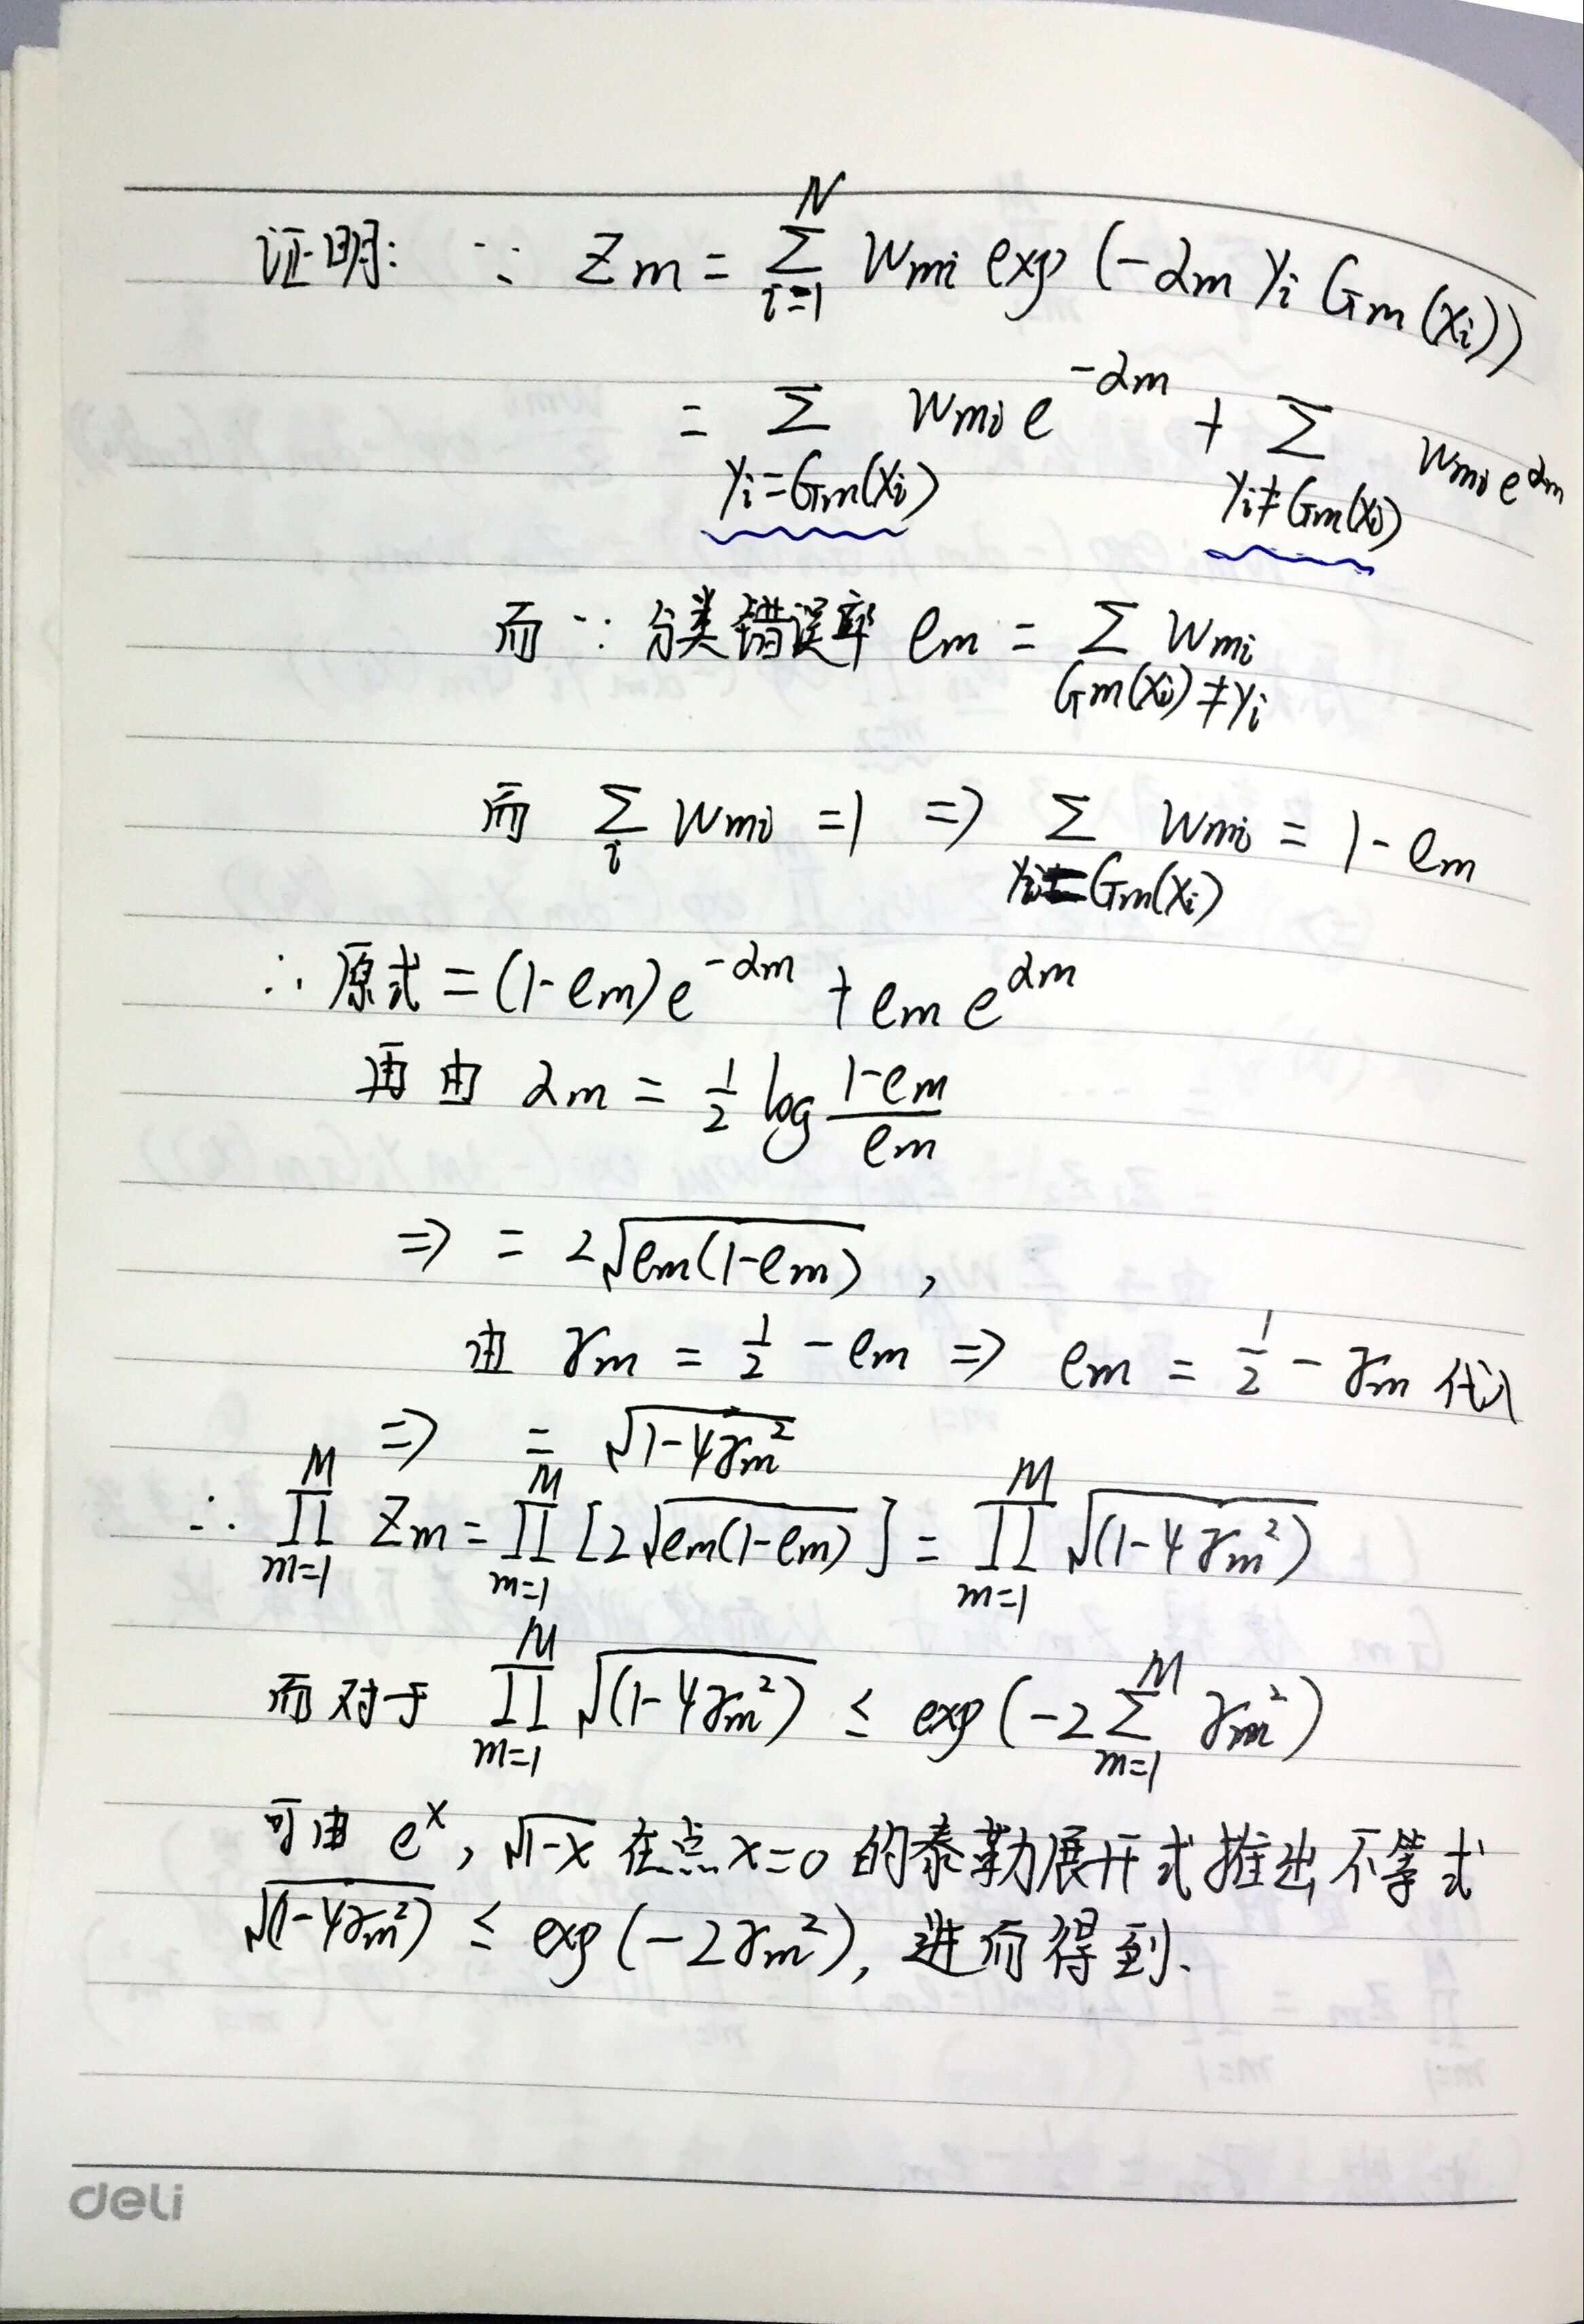 证明: ∵ Zm = Σ_{i=1}^{N} Wmi exp(-αm yi Gm(xi))
= Σ_{yi=Gm(xi)} Wmi e^{-αm} + Σ_{yi≠Gm(xi)} Wmi e^{αm}
而 ∵ 分类错误率 em = Σ_{Gm(xi)≠yi} Wmi
而 Σ_i Wmi = 1 => Σ_{yi=Gm(xi)} Wmi = 1-em
∴ 原式 = (1-em)e^{-αm} + em e^{αm}
再由 αm = 1/2 log (1-em)/em
=> = 2√(em(1-em)) ,
由 γm = 1/2 - em => em = 1/2 - γm 代入
=> = √(1-4γm²)
∴ ∏_{m=1}^{M} Zm = ∏_{m=1}^{M} [2√(em(1-em))] = ∏_{m=1}^{M} √(1-4γm²)
而对于 ∏_{m=1}^{M} √(1-4γm²) ≤ exp(-2 Σ_{m=1}^{M} γm²)
可由 e^x, √(1-x) 在点x=0 的泰勒展开式推出不等式
√(1-4γm²) ≤ exp(-2γm²), 进而得到.
deli